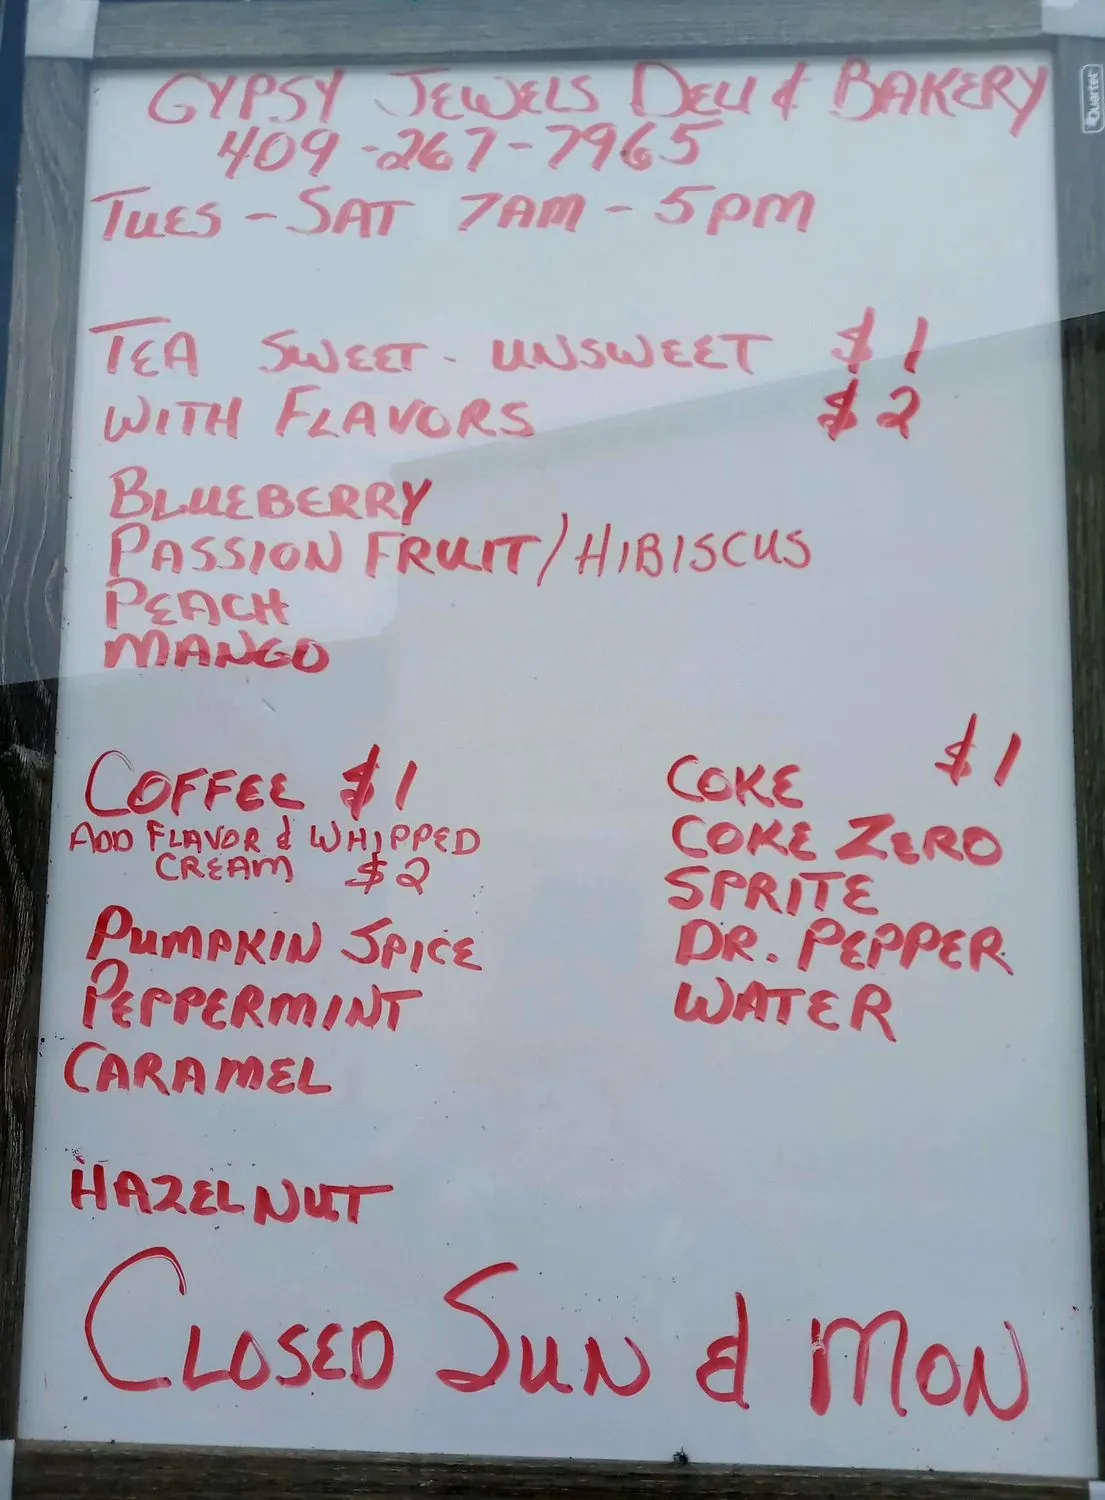 GYPSY JEWELS DELI & BAKERY
409-267-7965
TUES - SAT 7AM - 5PM
TEA SWEET - UNSWEET $1
WITH FLAVORS $2
BLUEBERRY
PASSION FRUIT/HIBISCUS
PEACH
MANGO
COFFEE $1
ADD FLAVOR & WHIPPED
CREAM $2
PUMPKIN SPICE
PEPPERMINT
CARAMEL
HAZELNUT
COKE $1
COKE ZERO
SPRITE
DR. PEPPER
WATER
CLOSED SUN & MON
Quartet